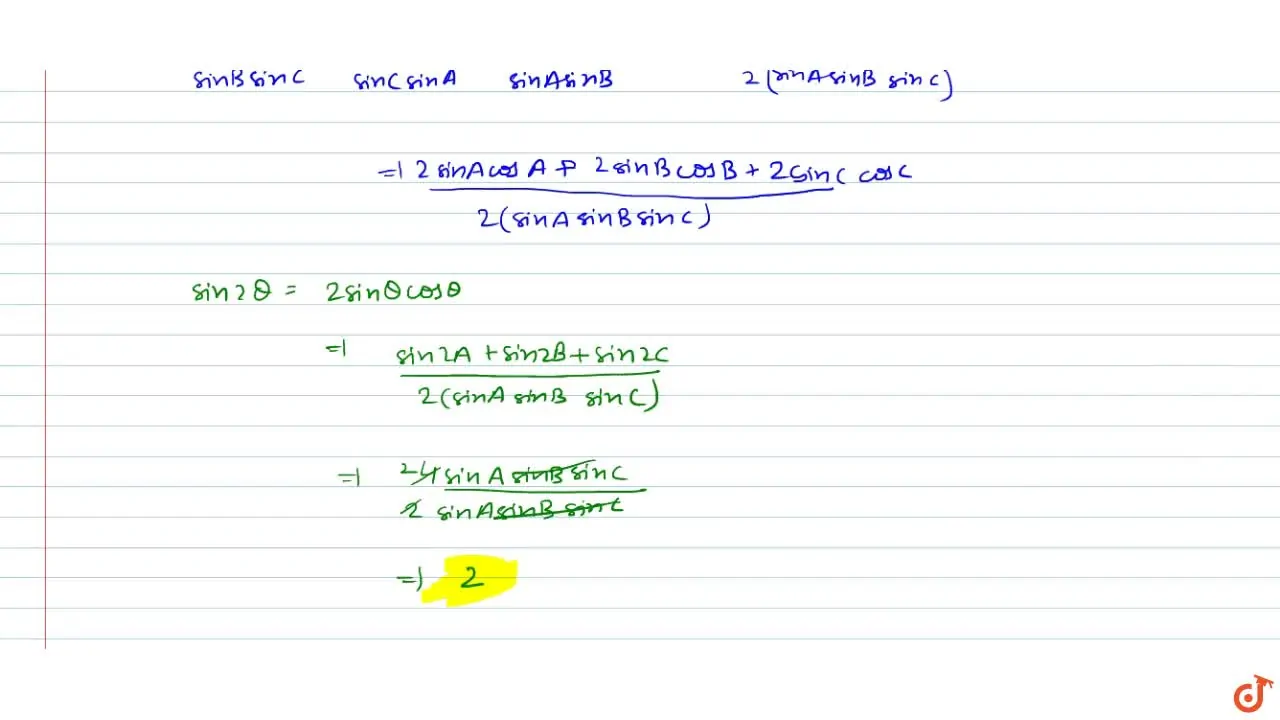 sinB sinC sinC sinA sinA sinB 2(sinA sinB sinC)
=) 2 sinA cosA + 2 sinB cosB + 2 sinC cosC
2(sinA sinB sinC)
sin2θ = 2sinθcosθ
=) sin2A + sin2B + sin2C
2(sinA sinB sinC)
=) 2 4 sinA sinB sinC
2 sinA sinB sinC
=) 2